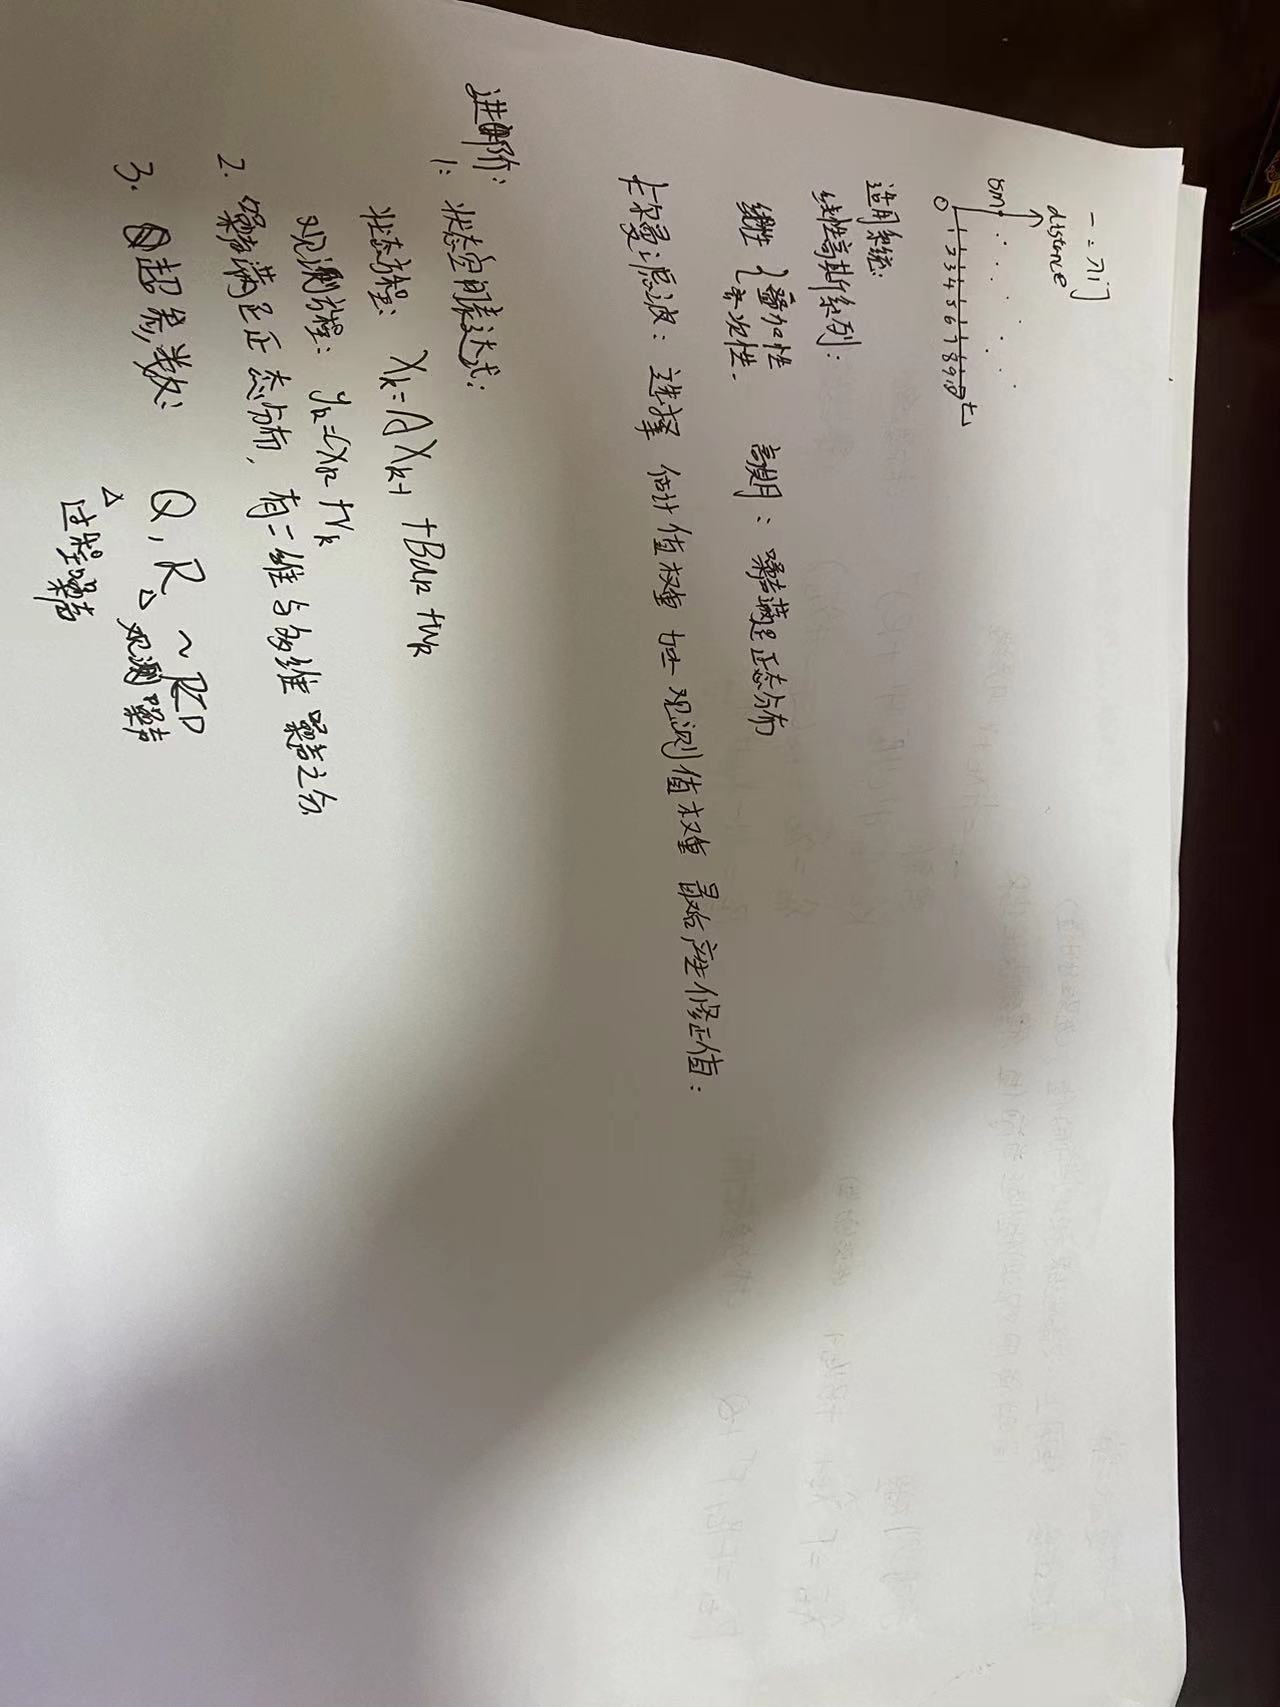 一：入门
distance
5m
0 1 2 3 4 5 6 7 8 9 10 t
适用系统：
线性高斯系列：
线性 { 叠加性 高斯：噪声满足正态分布
齐次性.
卡尔曼滤波：选择 估计值权重 观测值权重 最后产生修正值：
进阶：
1: 状态空间表达式：
状态方程： Xk=AXk-1 +Buk +wk
观测方程： yk=Cxk +vk
2. 噪声满足正态分布，有二维与多维 噪声之分
3. 超参数： Q, R ~
观测噪声
过程噪声